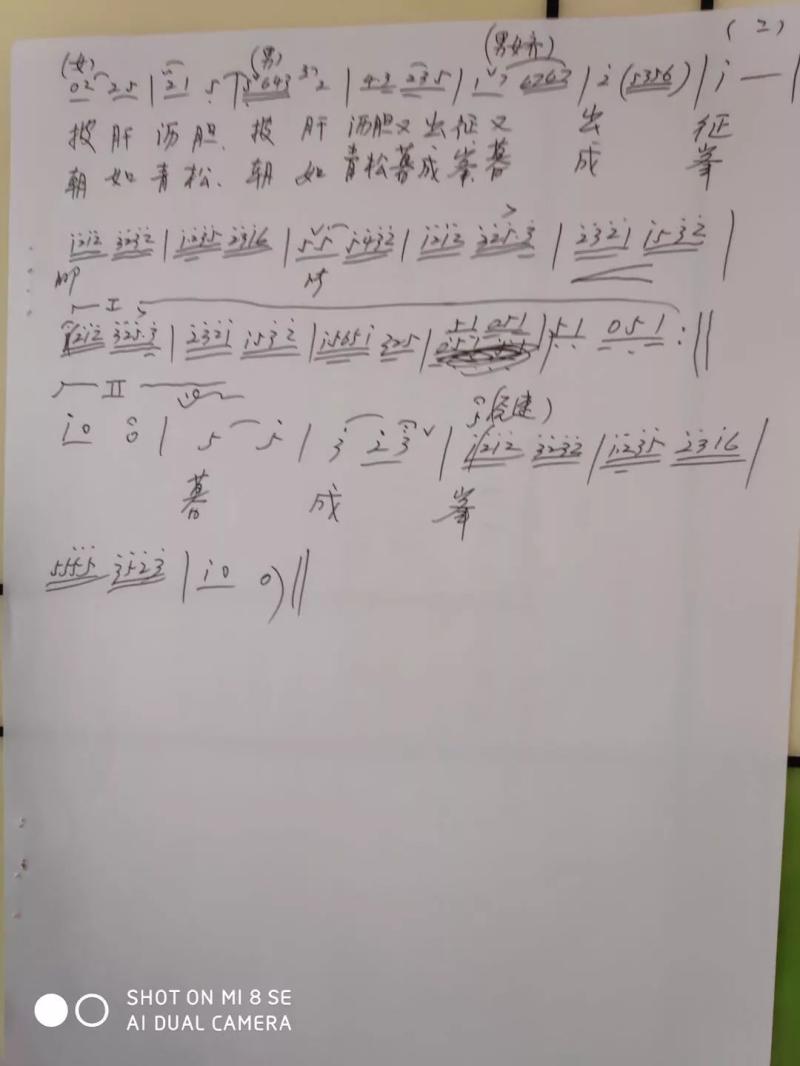 (2)
(女) (男) (男女齐)
02 25 | 21 5 | 5643 2 | 43 235 | 1 6262 | 2 (5356) | i — |
披肝沥胆、披肝沥胆又出征又出征
朝如青松、朝如青松暮成 暮成
1212 3232 | 1235 2316 | 55 5432 | 1212 225·3 | 2321 1532 |
I
1212 325·3 | 2321 1532 | 15651 325 | 51 051 | 51 051 :||
II
i0 0 | 5 5 | 3 23 | 1212 3232 | 1235 2316 |
暮 成
5555 3523 | i0 0) ||
SHOT ON MI 8 SE
AI DUAL CAMERA